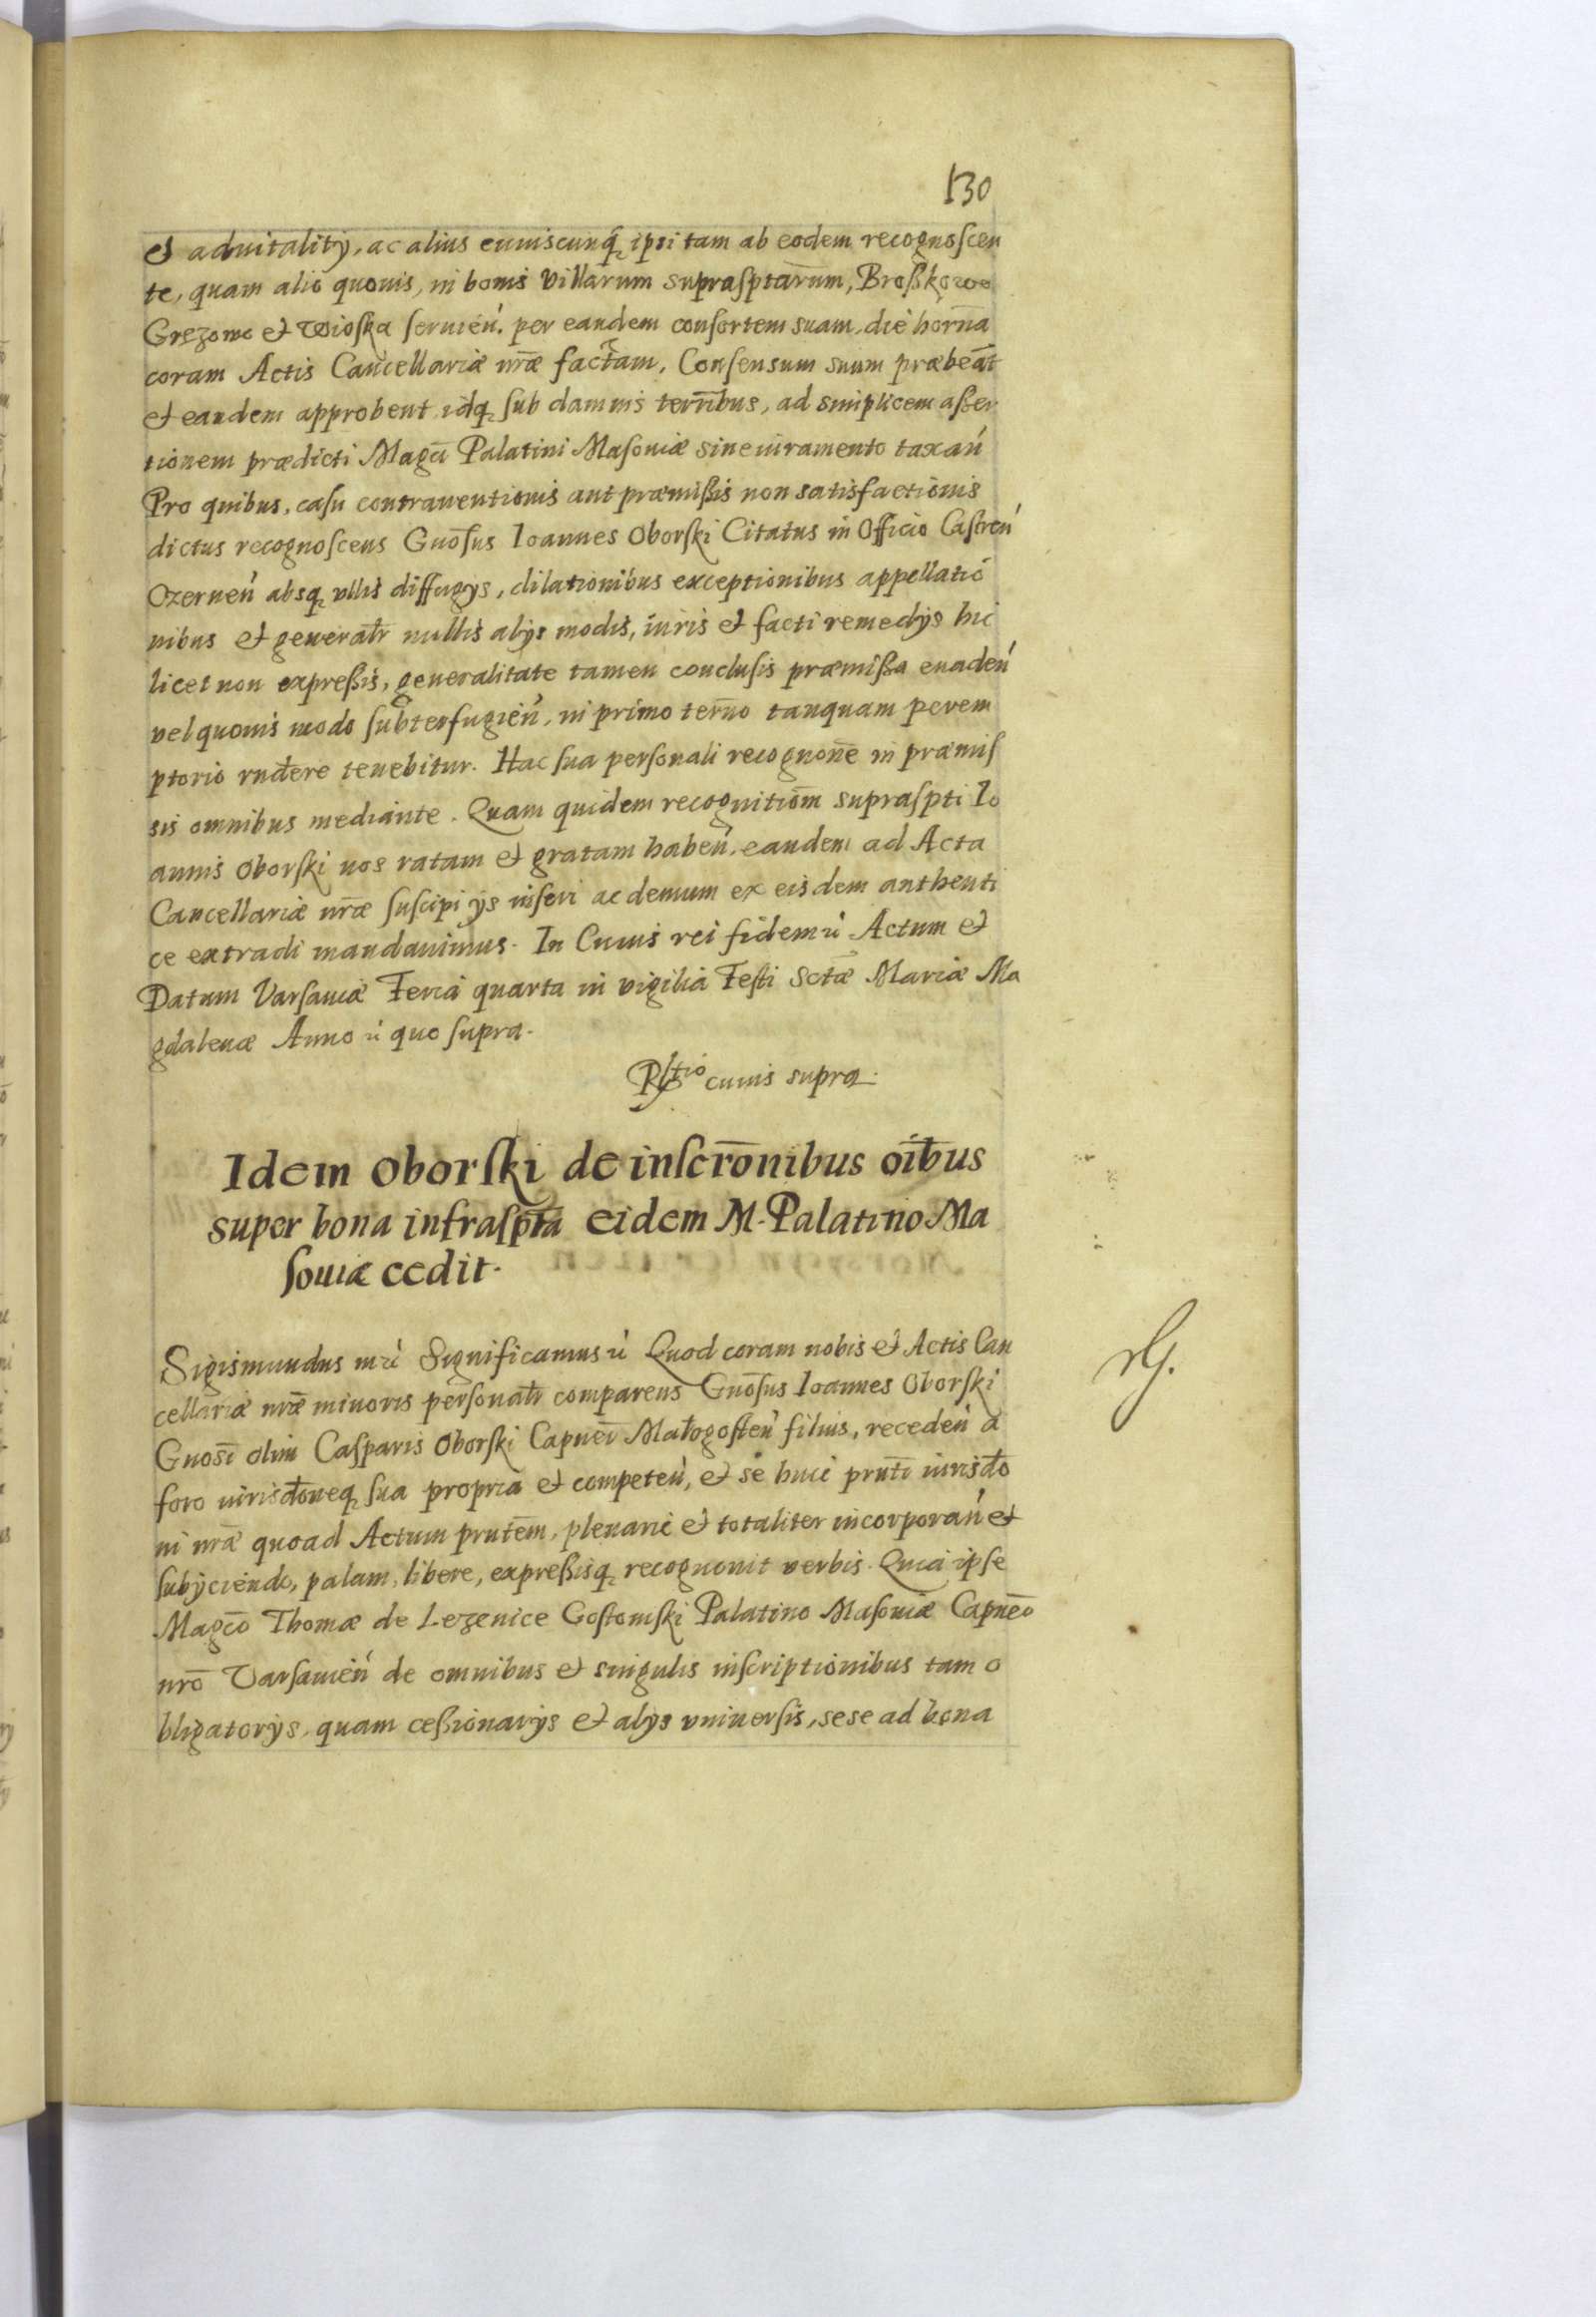 130
et aduitalitÿ, ac alius cuiuiscunq́ꝫ ipsi tam ab eodem recognoscen
te, quam alio quouis, in bonis Villarum suprasptarum, Broßkowo
Gręzowo et Wioska seruień. per eandem consortem suam, die horna
coram Actis Cancellariæ nr̄æ factam, Consensum suum præbeāt
et eandem approbent idqꝫ sub damnis terr̄ibus, ad simplicem asser
tionem prædicti Magci Palatini Masouiæ sine iuramento taxań
Pro quibus, casu contrauentionis aut præmißis non satisfactionis
dictus recognoscens Gnōsus Ioannes Oborski Citatus in Officio Castreń
Czerneń absqꝫ vllis diffugÿs, dilationibus exceptionibus appellatio
nibus et generalr̄ nullis alÿs modis, iuris et facti remedÿs hic
licet non expreßis, generalitate tamen conclusis præmißa euadeń
vel quouis modo subterfugień, in primo termo tanquam perem
ptorio rn̄dere tenebitur. Hac sua personali recognonē in præmis
sis omnibus mediante. Quam quidem recognitiōm supraspti Io
annis Oborski nos ratam et gratam habeń, eandem ad Acta
Cancellariæ nr̄æ suscipi ÿs inseri ac demum ex eisdem authenti
ce extradi mandauimus. In Cuius rei fidem ú Actum et
Datum Varsauiæ Feria quarta in vigilia Festi Sctæ Mariæ Ma
gdalenæ Anno ú quo supra.
Rltio cuius supra.
Idem Oborski de inscrōnibus oībus
super bona infrasptā eidem M. Palatino Ma
souiæ cedit.
Sigismundus mú Significamus ú Quod coram nobis et Actis Can
cellariæ nr̄æ minoris personalr̄ comparens Gnōsus Ioannes Oborski
Gnosī olim Casparis Oborski Capneī Małogosteń filius, recedeń a
foro iurisdoneqꝫ sua propria et competeń, et se huic prntī iurisdo
ni nr̄æ quoad Actum prntēm, plenarie et totaliter incorporań et
subÿciendo, palam, libere, expreßisqꝫ recognouit verbis. Quia ipse
Magco Thomæ de Lezenice Gostomski Palatino Masouiæ Capneo
nrō Varsauień de omnibus et singulis inscriptionibus tam o
bligatorÿs, quam ceßionarÿs et alÿs vniuersis, sese ad bona